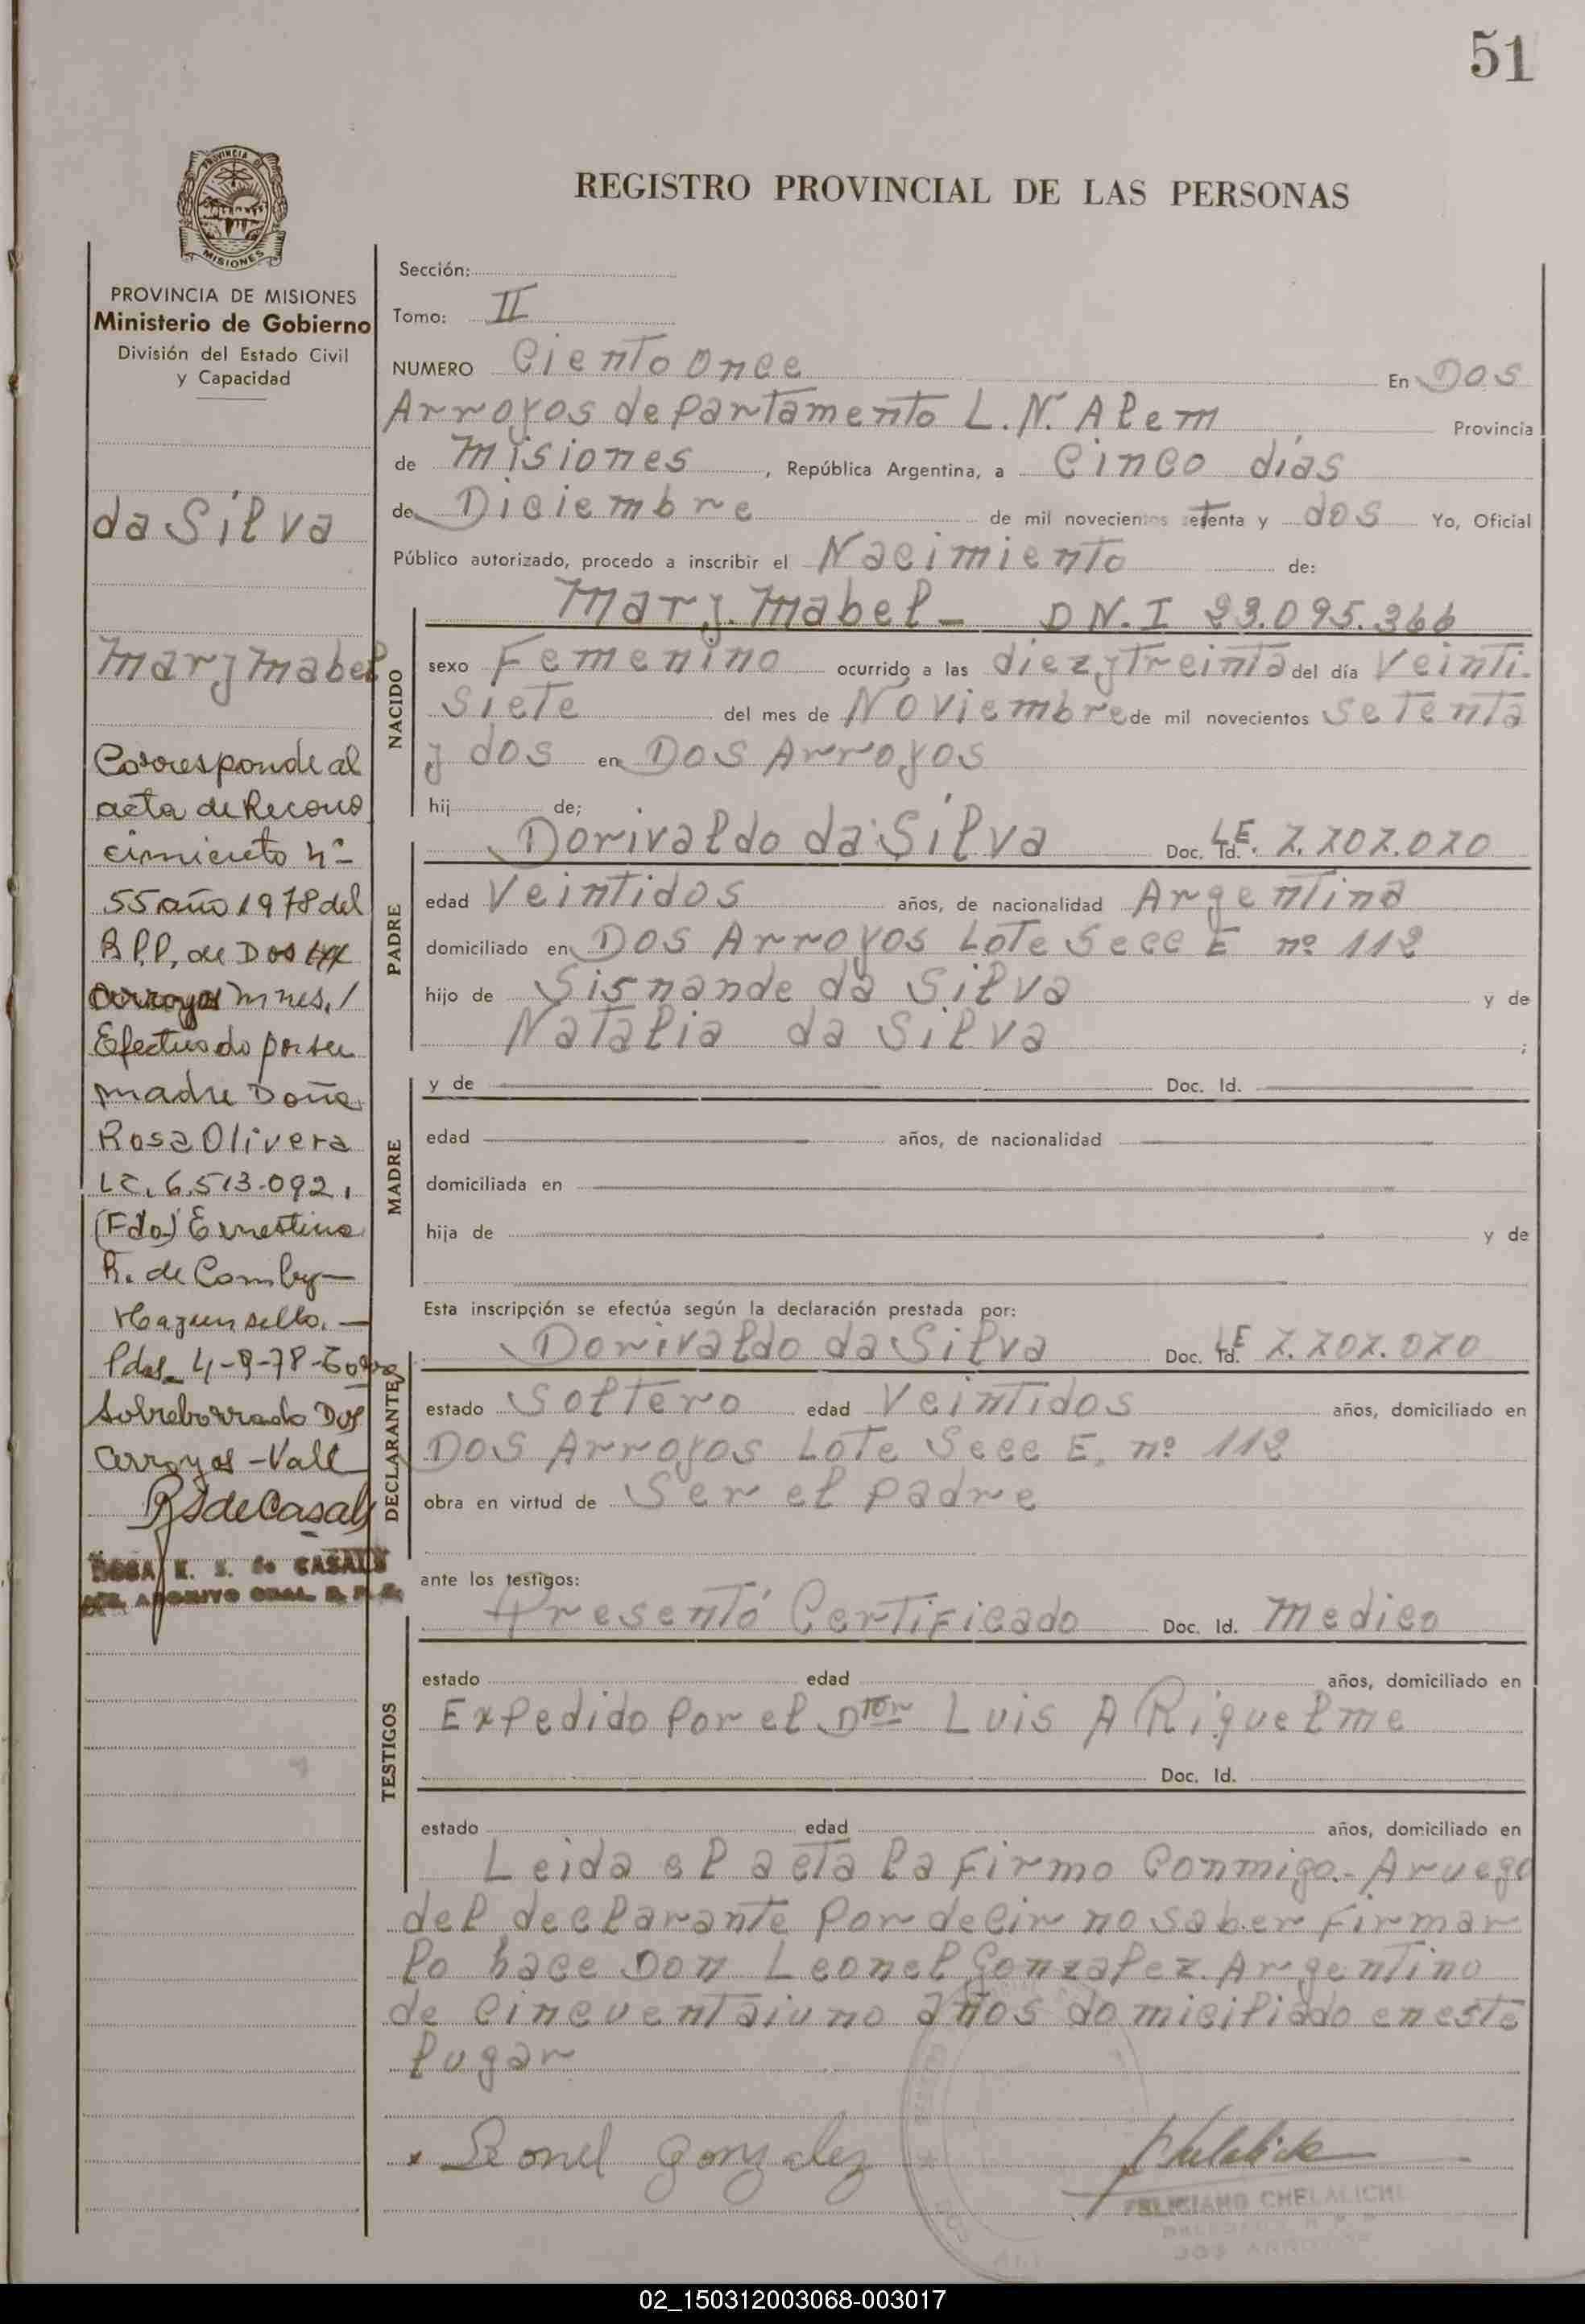 51
PROVINCIA DE
MISIONES
REGISTRO PROVINCIAL DE LAS PERSONAS
PROVINCIA DE MISIONES
Ministerio de Gobierno
División del Estado Civil
y Capacidad
da Silva
Mary Mabel
Corresponde al
acta de Recono
cimiento nº
55 año 1978 del
R.P.P. de Dos
Arroyos Mnes./
Efectuado por su
madre Doña
Rosa Olivera
LC. 6.513.092.
(Fdo) Ernestina
R. de Comby—
Hay un sello.—
Pdas. 4-9-78-
Sobreborrado Dos
Arroyos - Vale
RSdeCasals
ROSA E. S. de CASALS
ARCHIVO GRAL. R. P. P.
Sección:
Tomo: II
NUMERO Ciento Once En Dos
Arroyos departamento L. N. Alem Provincia
de Misiones, República Argentina, a Cinco días
de Diciembre de mil novecientos setenta y dos Yo, Oficial
Público autorizado, procedo a inscribir el Nacimiento de:
Mary. Mabel — D N. I 23.095.366
NACIDO
sexo Femenino ocurrido a las diez y treinta del día Veinti-
siete del mes de Noviembre de mil novecientos setenta
y dos en Dos Arroyos
hij de;
PADRE
Dorivaldo da Silva Doc. Id. LE. 7.707.070
edad Veintidos años, de nacionalidad Argentina
domiciliado en Dos Arroyos Lote Secc E nº 112
hijo de Sisnande da Silva y de
Natalia da Silva ;
MADRE
y de Doc. Id.
edad años, de nacionalidad
domiciliada en
hija de y de
Esta inscripción se efectúa según la declaración prestada por:
DECLARANTE
Dorivaldo da Silva Doc. Id. LE 7.707.070
estado Soltero edad Veintidos años, domiciliado en
Dos Arroyos Lote Secc E. nº 112
obra en virtud de Ser el padre
ante los testigos:
TESTIGOS
Presentó Certificado Doc. Id. Medico
estado edad años, domiciliado en
Expedido Por el Dtor Luis A Riquelme
Doc. Id.
estado edad años, domiciliado en
Leida el acta la Firmo Conmigo.- A ruego
del declarante Por decir no saber Firmar
lo hace Don Leonel Gonzalez Argentino
de Cincuentaiuno años domiciliado en este
lugar
x Leonel Gonzalez
FELICIANO CHELALICHE
DELEGADO R. P. P.
DOS ARROYOS
02_150312003068-003017